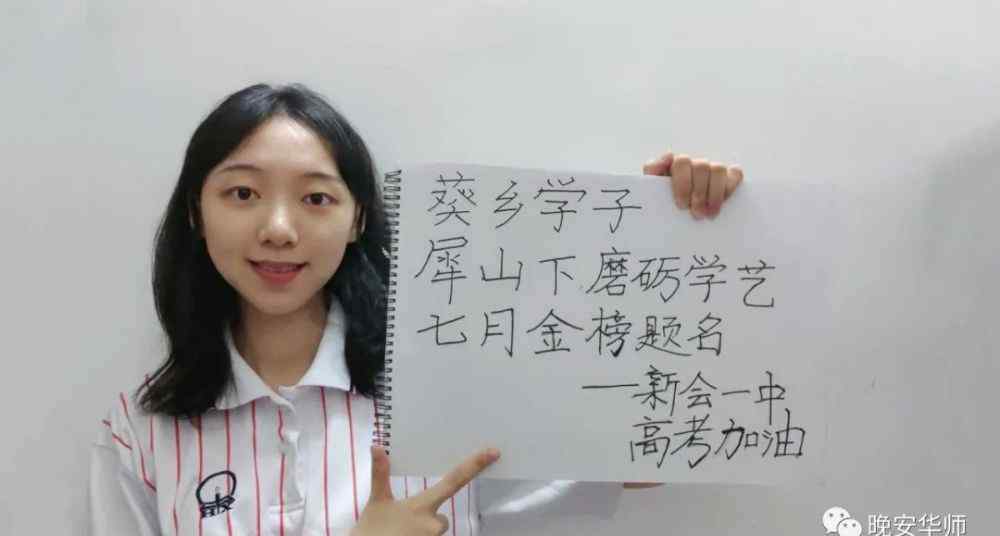 葵乡学子
犀山下磨砺学艺
七月金榜题名
——新会一中
高考加油
晚安华师